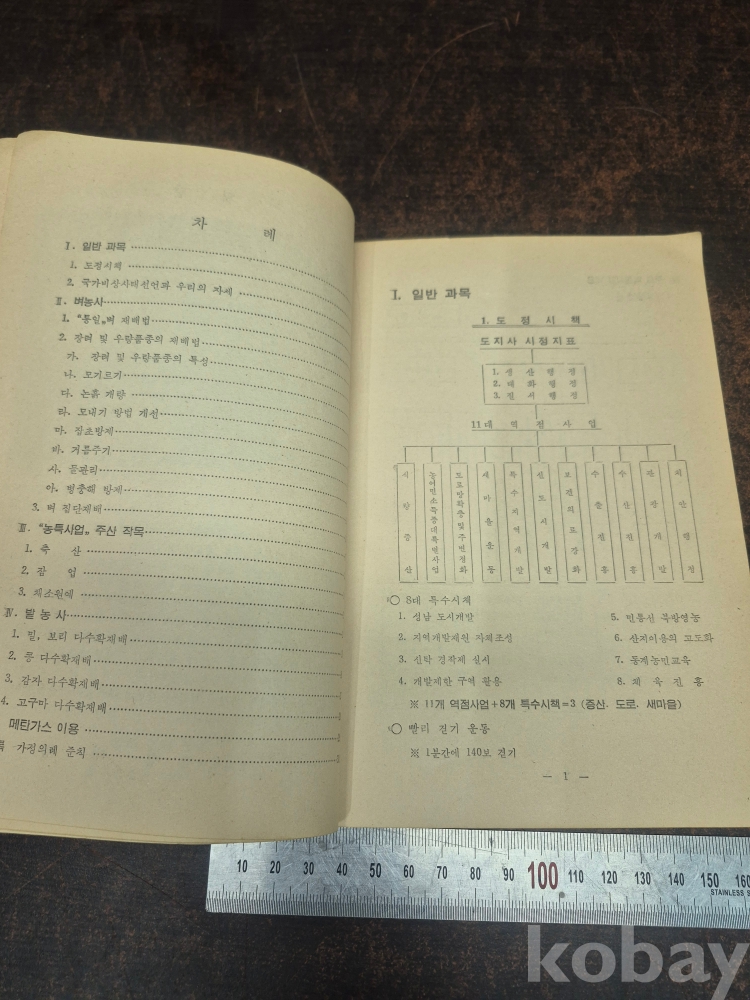 차 례
Ⅰ. 일반 과목
1. 도정시책
2. 국가비상사태선언과 우리의 자세
Ⅱ. 벼농사
1. "통일„벼 재배법
2. 장려 및 우량품종의 재배법
가. 장려 및 우량품종의 특성
나. 모기르기
다. 논흙 개량
라. 모내기 방법 개선
마. 잡초방제
바. 거름주기
사. 물관리
아. 병충해 방제
3. 벼 집단재배
Ⅲ. "농특사업„ 주산 작목
1. 축 산
2. 잠 업
3. 채소원예
Ⅳ. 밭 농 사
1. 밀, 보리 다수확재배
2. 콩 다수확재배
3. 감자 다수확재배
4. 고구마 다수확재배
메탄가스 이용
록 가정의례 준칙
Ⅰ. 일반 과목
1. 도 정 시 책
도지사 시정지표
1. 생 산 행 정
2. 대 화 행 정
3. 전 시 행 정
11대 역점사업
식량증산
농어민소득증대특별사업
도로망확충및주변정화
새마을운동
특수지역개발
신도시개발
보건의료강화
수출진흥
수산진흥
관광개발
치안행정
○ 8대 특수시책
1. 성남 도시개발
2. 지역개발재원 자체조성
3. 신탁 경작제 실시
4. 개발제한 구역 활용
5. 민통선 북방영농
6. 산지이용의 고도화
7. 동계농민교육
8. 체 육 진 흥
※ 11개 역점사업+8개 특수시책=3 (증산, 도로, 새마을)
○ 빨리 걷기 운동
※ 1분간에 140보 걷기
— 1 —
10 20 30 40 50 60 70 80 90 100 110 120 130 140 150 160
STAINLESS S
kobay